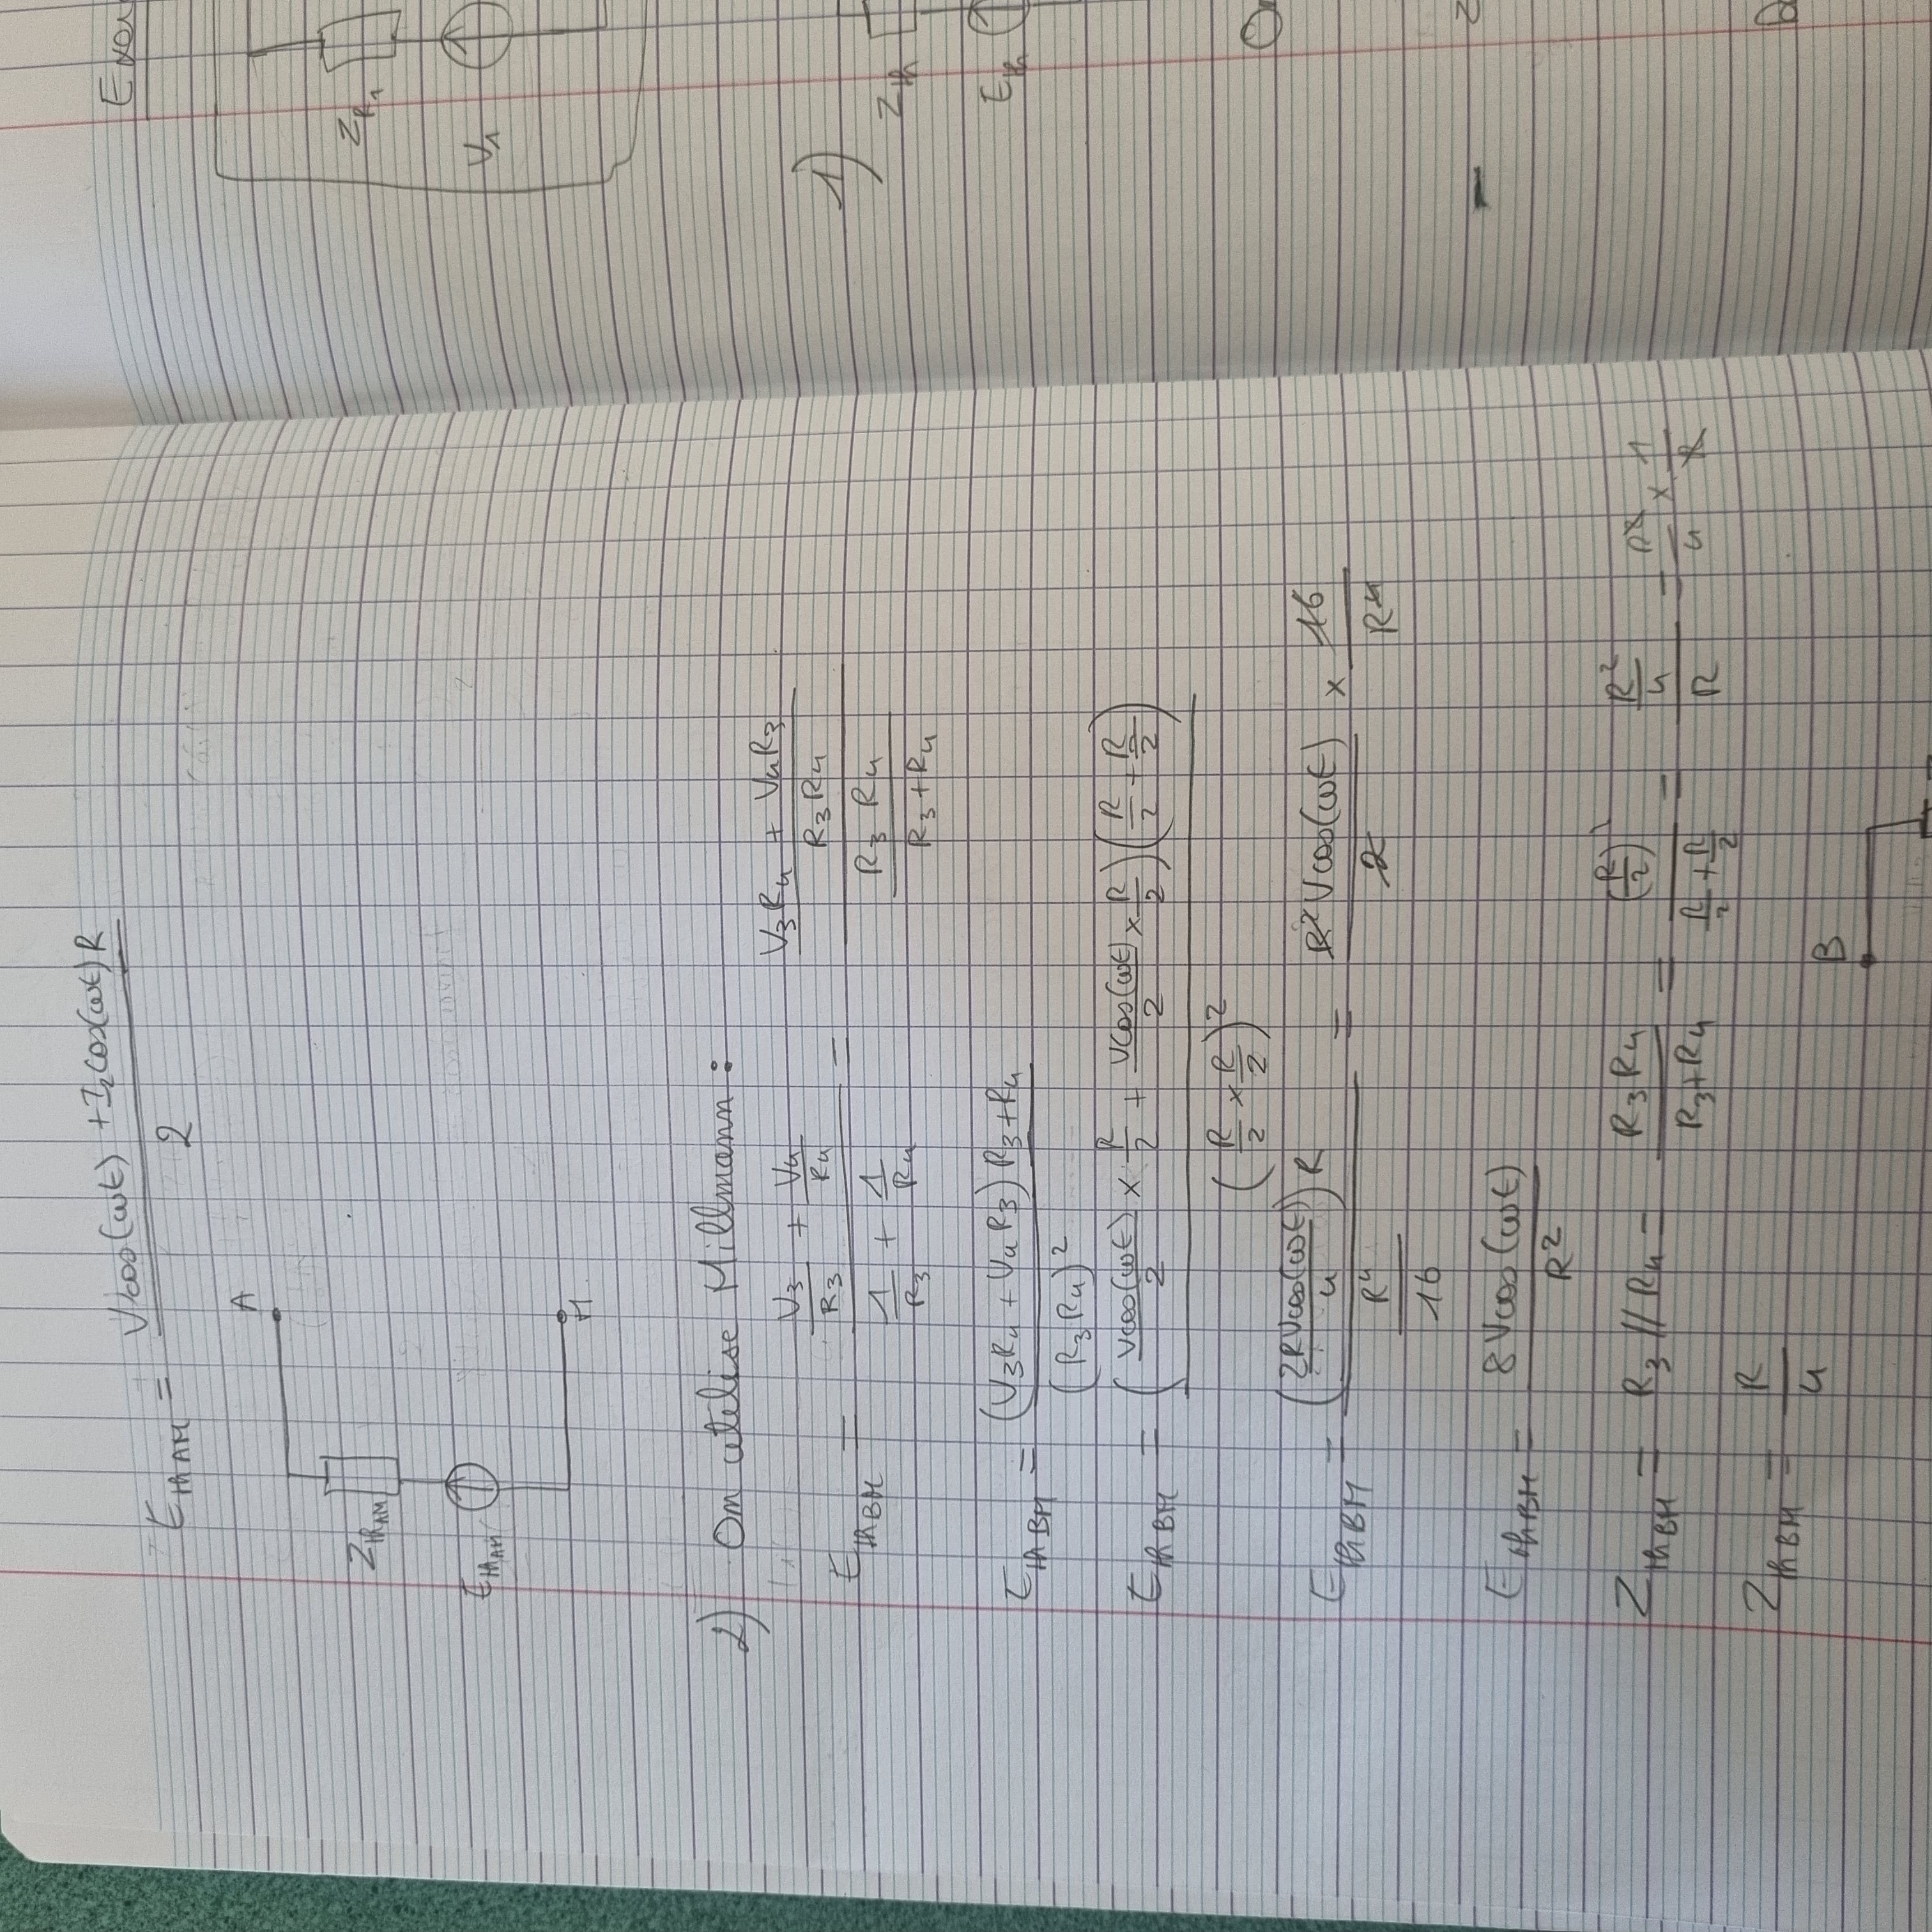 E_thAM = (Vcos(ωt) + I₂cos(ωt)R) / 2
A
Z_thAM
E_thAM
M
2) On utilise Millmann :
E_thBM = (V₃/R₃ + V₄/R₄) / (1/R₃ + 1/R₄) = ((V₃R₄ + V₄R₃) / (R₃R₄)) / ((R₃R₄) / (R₃+R₄))
E_thBM = ((V₃R₄ + V₄R₃) R₃+R₄) / (R₃R₄)²
E_thBM = (Vcos(ωt)/2 × R/2 + Vcos(ωt)/2 × R/2)(R/2 + R/2) / (R/2 × R/2)²
E_thBM = ((2RVcos(ωt)/4) R) / (R⁴/16) = R²Vcos(ωt)/2 × 16/R⁴
E_thBM = 8Vcos(ωt) / R²
Z_thBM = R₃//R₄ = R₃R₄ / (R₃+R₄) = (R/2)² / (R/2 + R/2) = (R²/4) / R = R²/4 × 1/R
Z_thBM = R/4
B
Z_R1
V₁
1)
Z_th
E_th